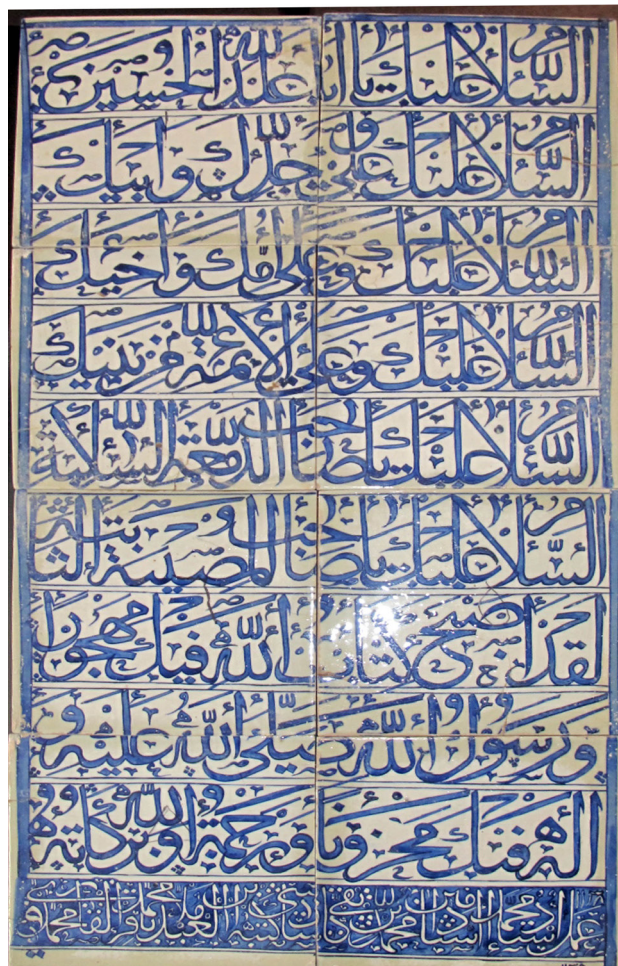 السلام عليك يا ابا عبد الله الحسين
السلام عليك وعلى جدك وابيك
السلام عليك وعلى امك واخيك
السلام عليك وعلى الأئمة من بنيك
السلام عليك يا صاحب الدمعة الساكبة
السلام عليك يا صاحب المصيبة الراتبة
لقد اصبح كتاب الله فيك مهجورا
ورسول الله صلى الله عليه و
اله فيك محزونا ورحمة الله وبركاته
عمل استاد محمد